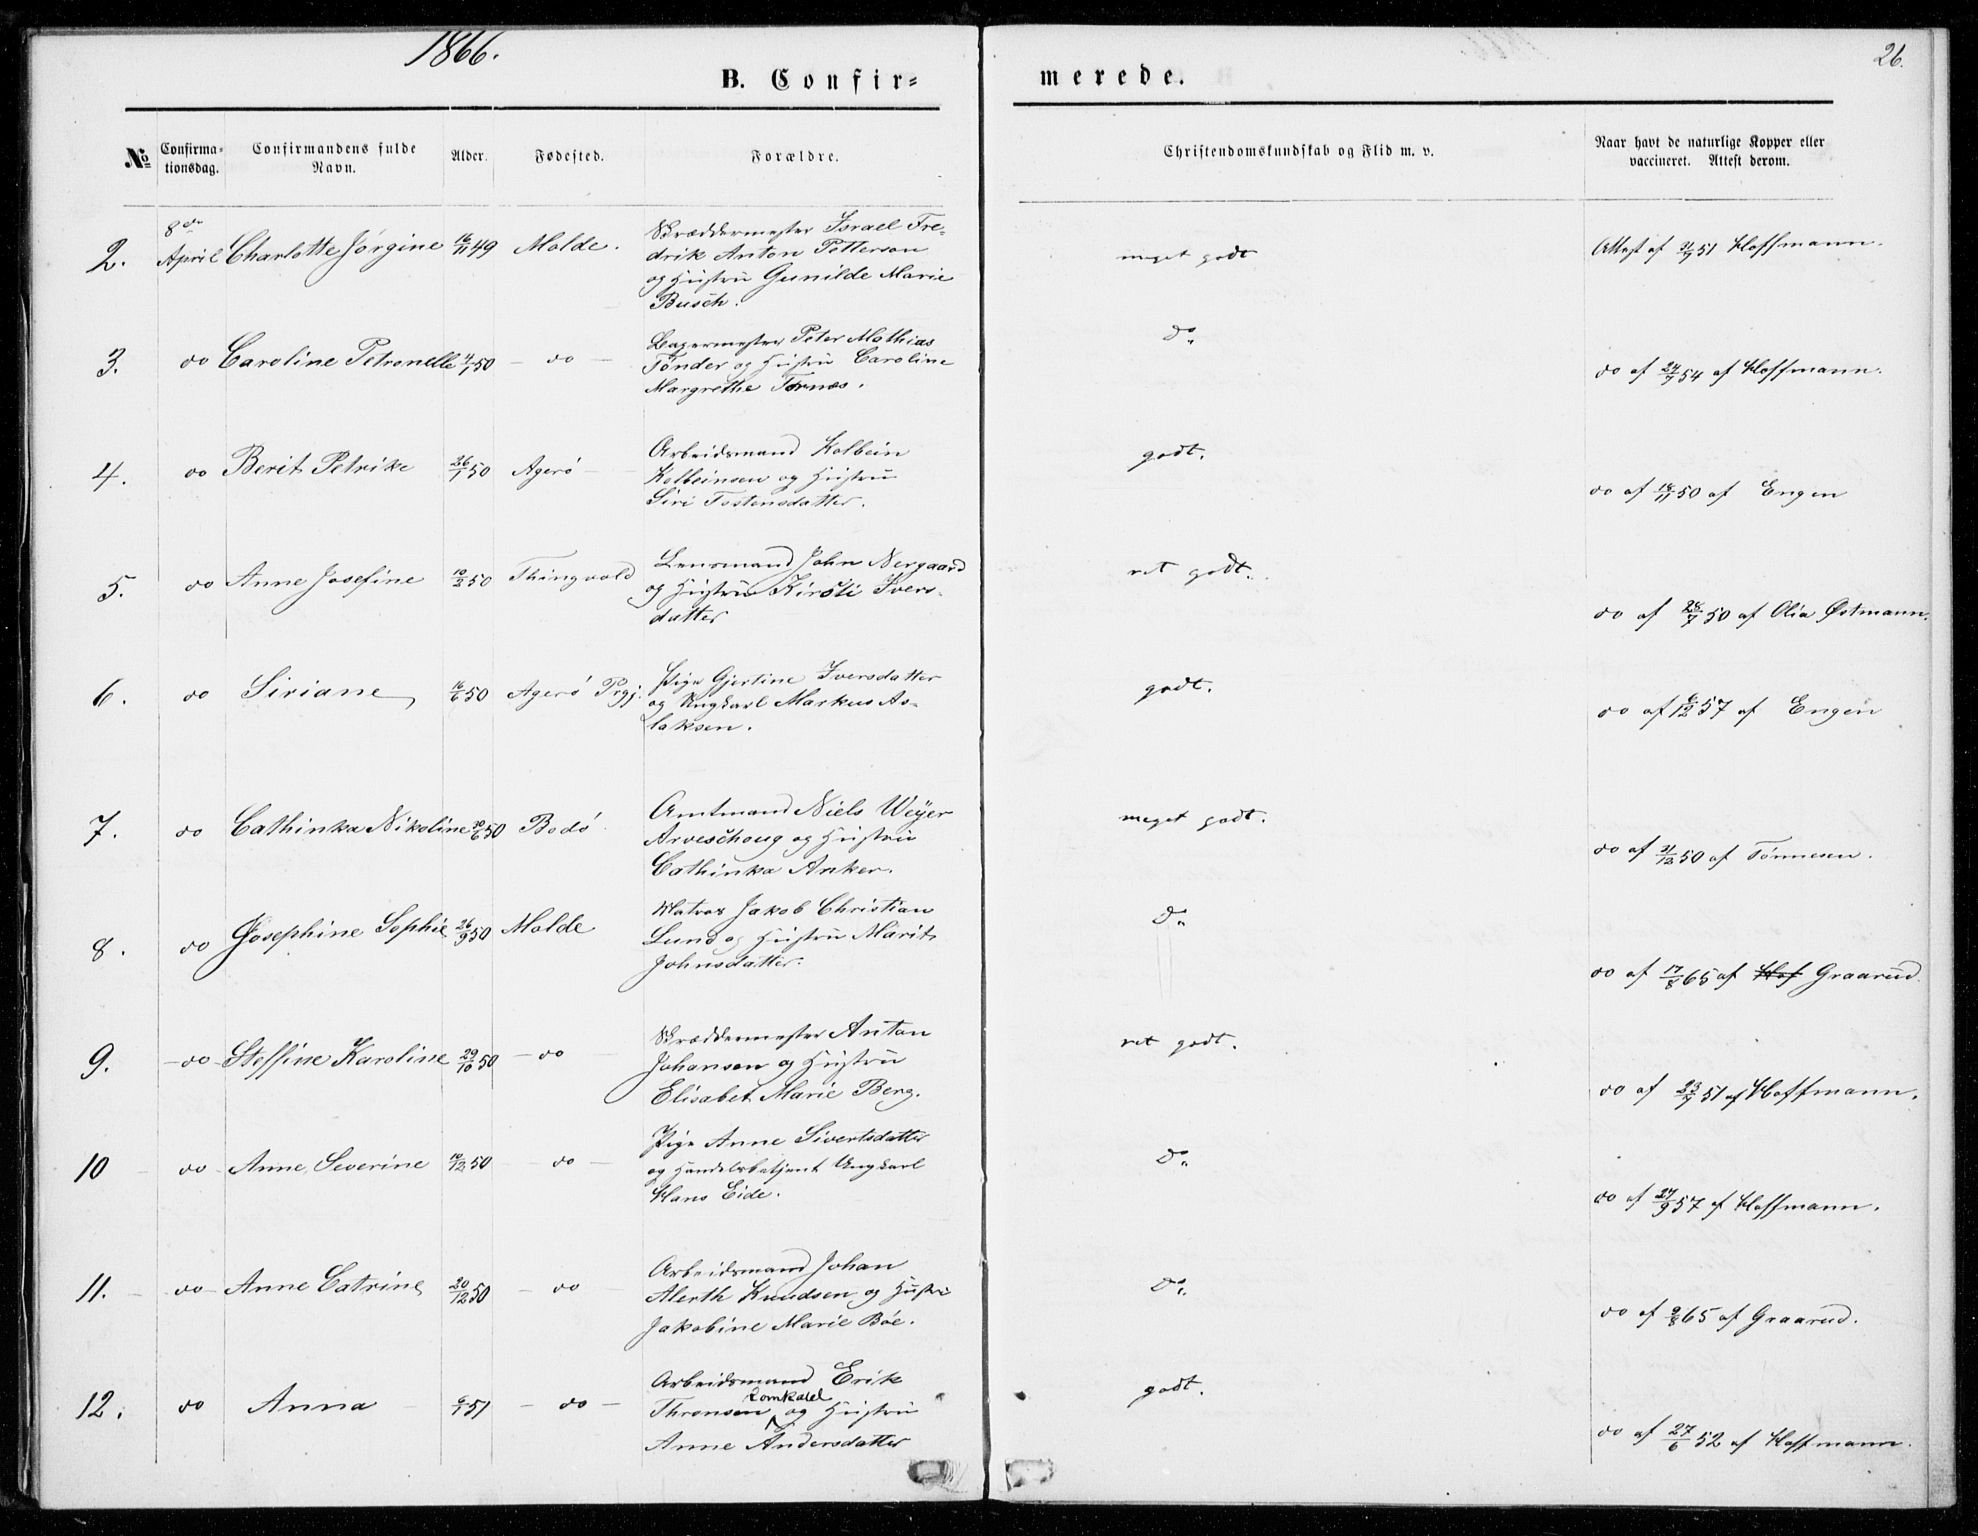 1866.
26.
B. Confir=
merede.
No
Confirma-
tionsdag.
Confirmandens fulde
Navn.
Alder.
Fødested.
Forældre.
Christendomskundskab og Flid m. v.
Naar havt de naturlige Kopper eller
vaccineret. Attest derom.
2.
8de
April
Charlotte Jørgine
16/11 49
Molde.
Skræddermester Israel Fre-
drik Anton Potterson
og Hustru Gunilde Marie
Busch.
meget godt
Attest af 51 Hoffmann.
3.
do
Caroline Petronelle
50
- do -
Bagermester Peter Mathias
Tønder og Hustru Caroline
Margrethe Tornæs.
Do
do af 24/7 54 af Hoffmann.
4.
do
Berit Petrike
26/1 50
Agerø
Arbeidsmand Kolbein
Kolbeinsen og Hustru
Siri Tostensdatter.
godt.
do af 18/11 50 af Engen
5.
do
Anne Josefine
10/2 50
Thingvold
Lensmand John Nergaard
og Hustru Kirsti Ivers-
datter
ret godt.
do af 28/7 50 af Olia Østmann.
6.
do
Siriane
16/6 50
Agerø Prgj.
Pige Gjertine Iversdatter
og Ungkarl Markus As-
laksen.
godt.
do af 6/12 57 af Engen
7.
do
Cathinka Nikoline
30/6 50
Bodø
Amtmand Niels Weyer
Arveschoug og Hustru
Cathinka Anker.
meget godt.
do af 31/12 50 af Tønnesen.
8.
do
Josephine Sophie
26/9 50
Molde
Matros Jakob Christian
Lund og Hustru Marit
Johnsdatter.
Do
do af 17/8 65 af Hof Graarud.
9.
- do -
Steffine Karoline
29/10 50
- do
Skræddermester Anton
Johansen og Hustru
Elisabet Marie Berg.
ret godt.
do af 23/7 51 af Hoffmann.
10
do
Anne Severine
10/12 50
- do -
Pige Anne Sivertsdatter
og Handelsbetjent Ungkarl
Hans Eide.
Do
do af 27/9 57 af Hoffmann.
11.
- do -
Anne Catrine
20/12 50
- do
Arbeidsmand Johan
Alerth Knudsen og Hustru
Jakobine Marie Bøe.
Do
do af 9/8 65 af Graarud.
12.
do
Anna
6/1 51
- do -
Arbeidsmand Erik
Romkald
Thronsen og Hustru
Anne Andersdatter
godt.
do af 27/6 52 af Hoffmann.